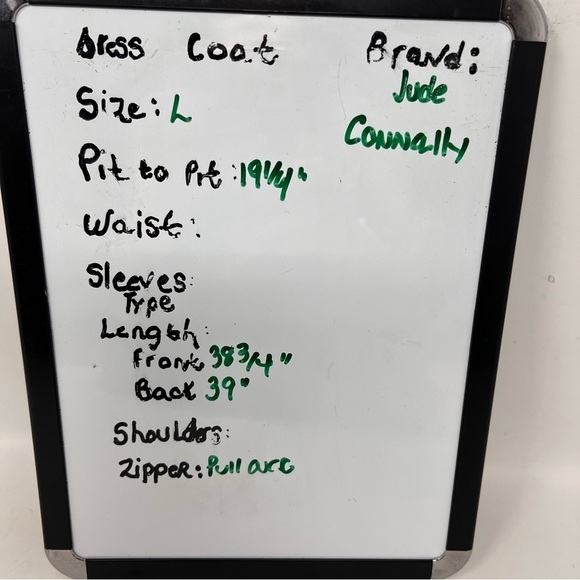 Dress Coat
Brand:
Jude
Connally
Size: L
Pit to Pit: 19 1/4"
Waist:
Sleeves:
Type
Length:
Front 38 3/4"
Back 39"
Shoulders:
Zipper: Pull over